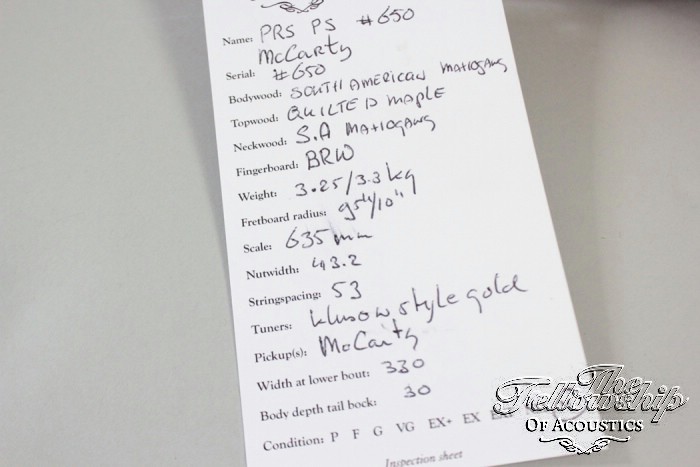 Name: PRS PS #650
McCarty
Serial: #650
Bodywood: SOUTH AMERICAN MAHOGANY
Topwood: QUILTED MAPLE
Neckwood: S.A MAHOGANY
Fingerboard: BRW
Weight: 3.25/3.3 kg
Fretboard radius: 9.5"/10"
Scale: 635 mm
Nutwidth: 43.2
Stringspacing: 53
Tuners: kluson style gold
Pickup(s): McCarty
Width at lower bout: 330
Body depth tail bock: 30
Condition: P F G VG EX+ EX
Inspection sheet
The
Fellowship
OF ACOUSTICS